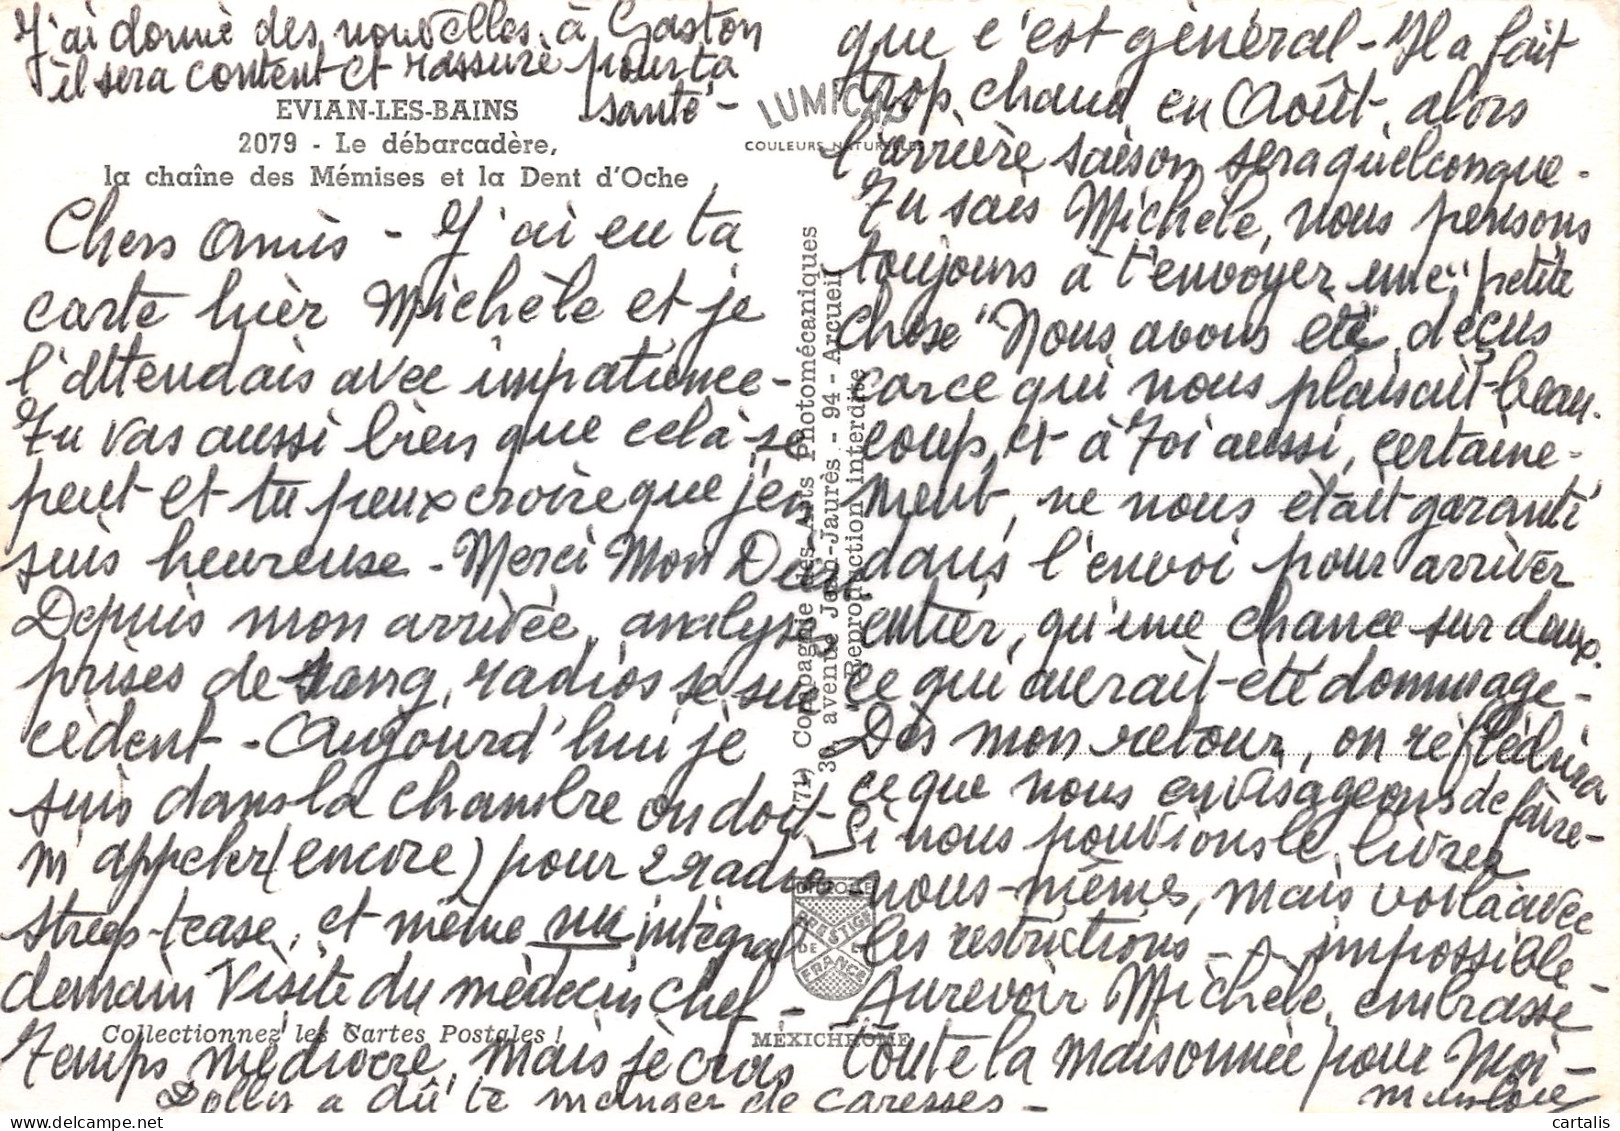 J'ai donné des nouvelles à Gaston
il sera content et rassuré pour ta
santé -
EVIAN-LES-BAINS
2079 - Le débarcadère,
la chaîne des Mémises et la Dent d'Oche
Chers Amis - J'ai eu ta
carte hier Michèle et je
l'attendais avec impatience -
Tu vas aussi bien que cela se
peut et tu peux croire que j'en
suis heureuse - Merci Mon Dieu
Depuis mon arrivée, analyses,
prises de sang, radios se suc
cèdent - Aujourd'hui je
suis dans la chambre on doit
m'appeler (encore) pour 2 radio
streep-tease, et même un intégral
demain Visite du médecin Chef -
Temps médiocre, mais je crois
Dolly a dû te manger de caresses -
Collectionnez les Cartes Postales !
LUMICAP
COULEURS NATURELLES
(71) Compagnie des Arts Photomécaniques
avenue Jean-Jaurès - 94 - Arcueil
"Reproduction interdite"
DIPLOME
PRESTIGE
DE LA
FRANCE
MEXICHROME
que c'est général - Il a fait
trop chaud en Août, alors
l'arrière saison sera quelconque -
Tu sais Michèle, nous pensons
toujours à t'envoyer une "petite
chose" Nous avons été déçus
parce qui nous plaisait beau-
coup, et à Toi aussi, certaine-
ment, ne nous était garanti
dans l'envoi pour arriver
entier, qu'une chance sur deux
ce qui aurait été dommage -
Dès mon retour, on réfléchira
ce que nous envisageons de faire -
Si nous pouvions le livrer
nous-mêmes, mais voilà avec
les restrictions - impossible -
Au revoir Michèle, embrasse
toute la maisonnée pour Moi -